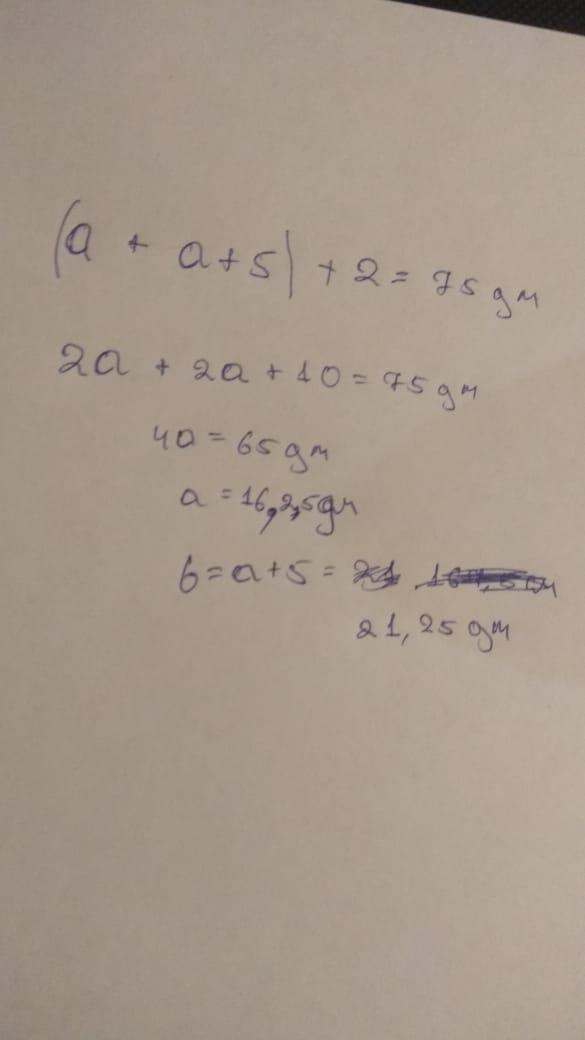 (a + a+5) + 2 = 75 дм
2a + 2a + 10 = 75 дм
4a = 65 дм
a = 16,25 дм
b = a+5 =
21,25 дм